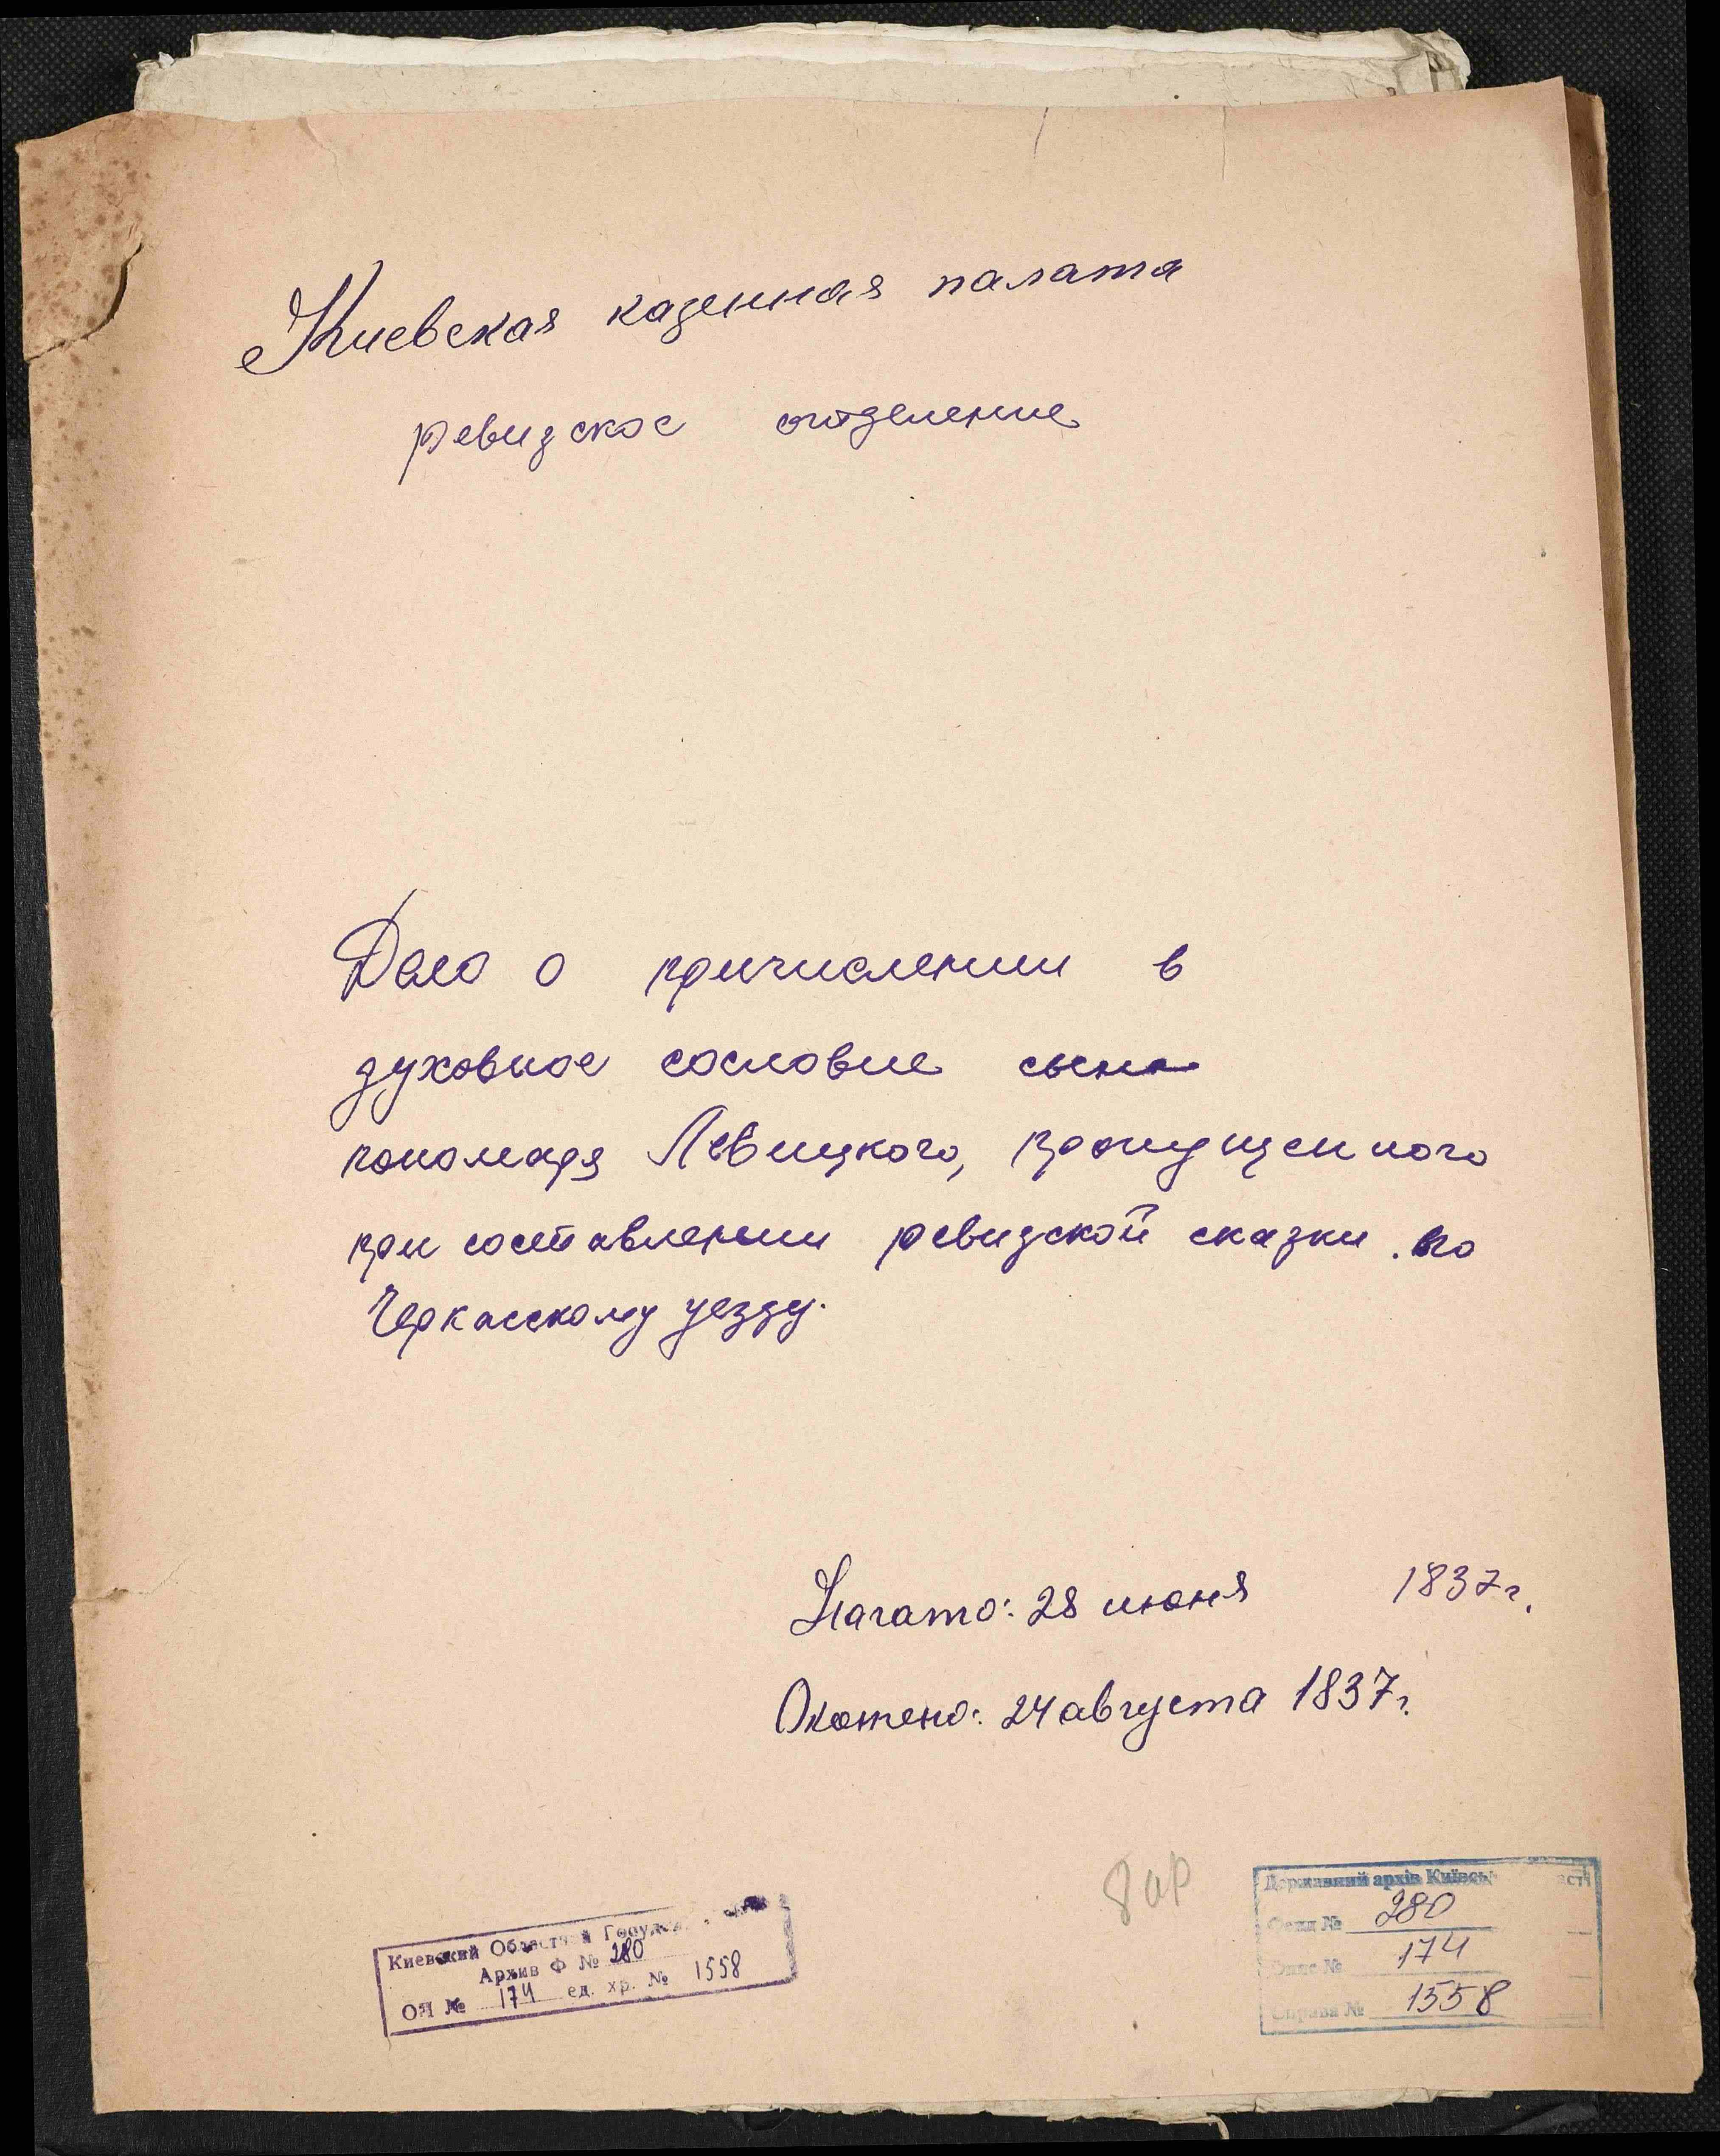 Киевская казенная палата
ревизское отделение
Дело о причислении в
духовное сословие сына
пономаря Левицкого, пропущенного
при составлении ревизской сказки по
Черкасскому уезду.
Начато: 28 июня 1837 г.
Окончено: 24 августа 1837 г.
8 ар
Киевский Областной
Архив Ф № 280
ОП № 174 ед. хр. № 1558
Державний архів
Фонд № 280
Опис № 174
Справа № 1558